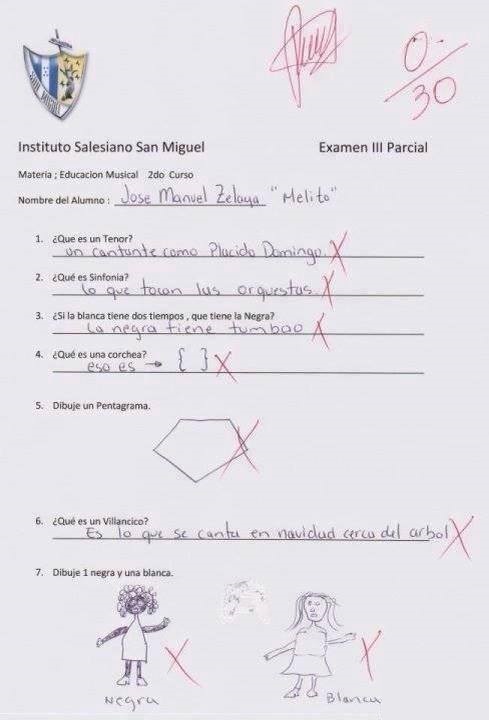 SAN MIGUEL
0
30
Instituto Salesiano San Miguel Examen III Parcial
Materia ; Educacion Musical 2do Curso
Nombre del Alumno : Jose Manuel Zelaya "Melito"
1. ¿Que es un Tenor?
un cantante como Placido Domingo.
2. ¿Qué es Sinfonía?
lo que tocan las orquestas.
3. ¿Si la blanca tiene dos tiempos , que tiene la Negra?
La negra tiene tumbao
4. ¿Qué es una corchea?
eso es → { }
5. Dibuje un Pentagrama.
6. ¿Qué es un Villancico?
Es lo que se canta en navidad cerca del arbol
7. Dibuje 1 negra y una blanca.
Negra Blanca